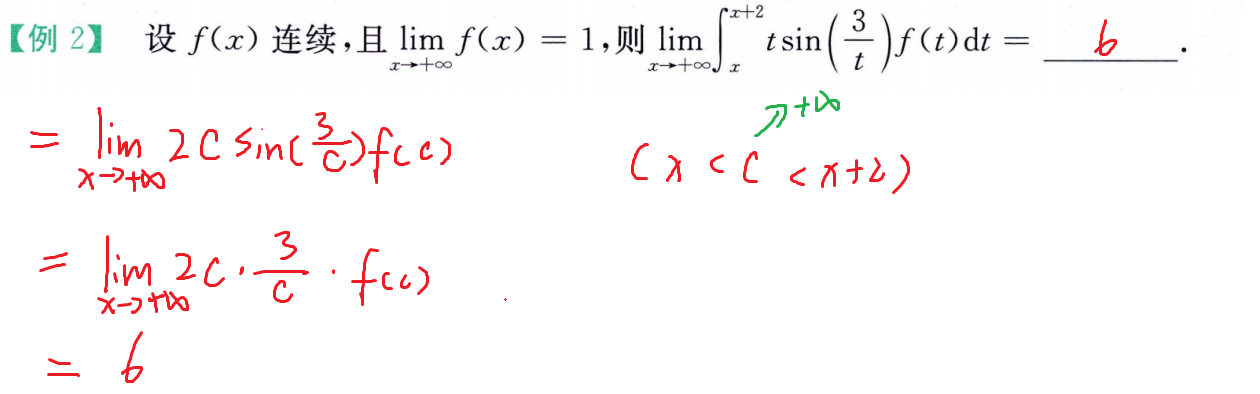 【例 2】 设 f(x) 连续,且 lim_{x→+∞} f(x) = 1,则 lim_{x→+∞} ∫_x^{x+2} t sin(3/t) f(t) dt = 6 .
→+∞
= lim_{x→+∞} 2C sin(3/C) f(c) (x < C < x+2)
= lim_{x→+∞} 2C · 3/C · f(c)
= 6